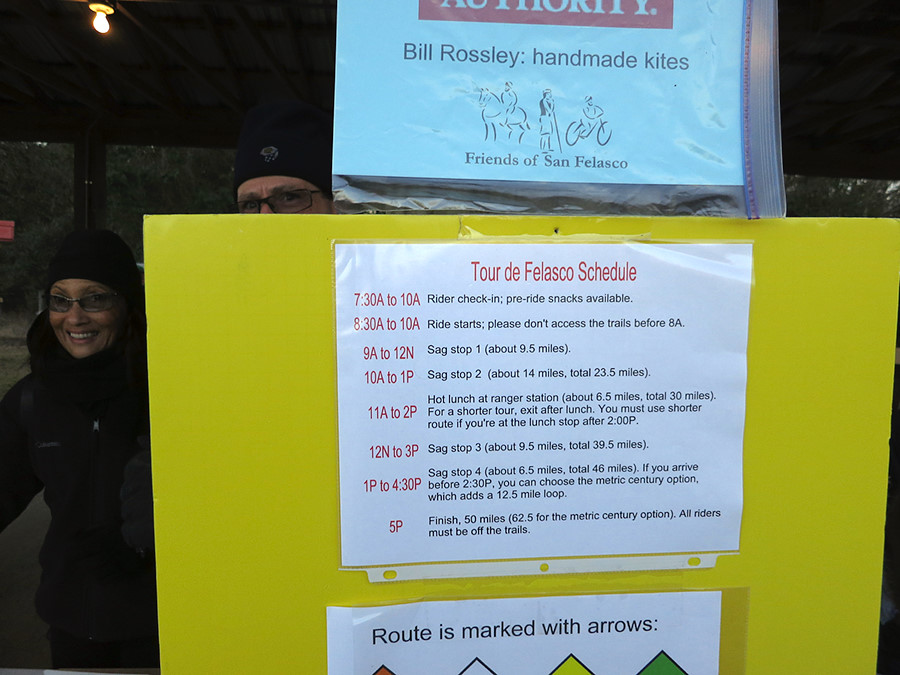 AUTHORITY.
Bill Rossley: handmade kites
Friends of San Felasco
Tour de Felasco Schedule
7:30A to 10A Rider check-in; pre-ride snacks available.
8:30A to 10A Ride starts; please don't access the trails before 8A.
9A to 12N Sag stop 1 (about 9.5 miles).
10A to 1P Sag stop 2 (about 14 miles, total 23.5 miles).
11A to 2P Hot lunch at ranger station (about 6.5 miles, total 30 miles).
For a shorter tour, exit after lunch. You must use shorter
route if you're at the lunch stop after 2:00P.
12N to 3P Sag stop 3 (about 9.5 miles, total 39.5 miles).
1P to 4:30P Sag stop 4 (about 6.5 miles, total 46 miles). If you arrive
before 2:30P, you can choose the metric century option,
which adds a 12.5 mile loop.
5P Finish, 50 miles (62.5 for the metric century option). All riders
must be off the trails.
Route is marked with arrows:
Columbia